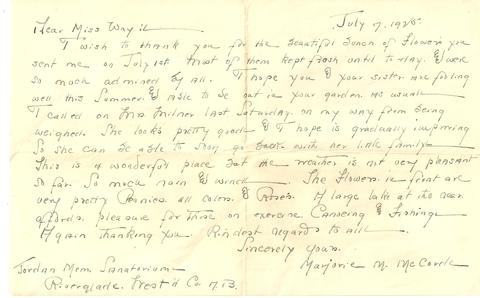 July 7, 1925
Dear Miss Way
I wish to thank you for the beautiful bunch of Flowers you
sent me on July 1st Most of them kept fresh until to-day. & were
so much admired by all. I hope you & your sister are feeling
well this Summer. & able to be out in your garden as usual
I called on Mrs Milner last Saturday on my way from being
weighed. She looks pretty good & I hope is gradually improving
So she can be able to stay with her little family
This is a wonderful place but the weather is not very pleasant
so far. So much rain & wind The Flowers in front are
very pretty Peonies all colors. & Roses. A large lake at the rear
affords pleasure for those on exercise Canoeing & Fishing
Again thanking you. Kindest regards to all
Sincerely yours.
Marjorie M. McCordle
Jordan Mem. Sanatorium
Riverglade. West'd Co. N.B.